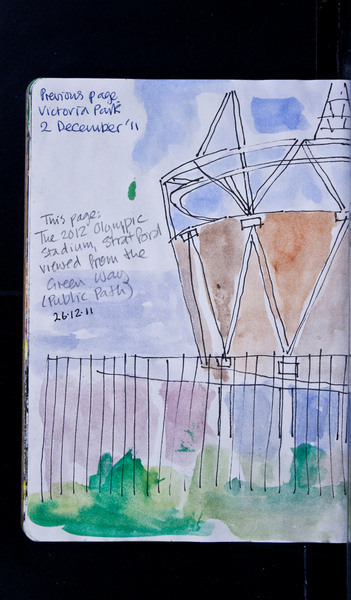 Previous page
Victoria Park
2 December '11
This page:
The 2012 Olympic
Stadium, Stratford
viewed from the
Green Way
(Public Path)
26.12.11